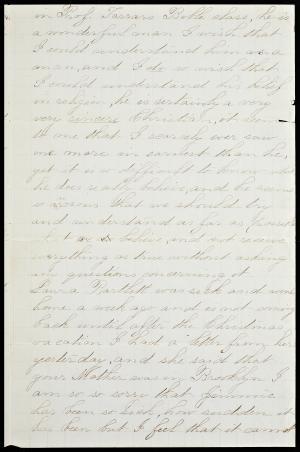 in Prof. Farrars Bible class, he is
a wonderful man I wish that
I could understand him as a
man, and I do so wish that
I could understand his belief
in religion, he is certainly a very
very sincere Christian, it seems
to one that I scarcely ever saw
one more in earnest than he,
yet it is so difficult to know what
he does really believe, and he seems
so anxious that we should try
and understand as far as possible
what we believe, and not receive
everything as true without asking
any questions concerning it
Laura Bartlett was sick and went
home a week ago and is not coming
back until after the Christmas
vacation I had a letter from her
yesterday, and she said that
your Mother was in Brooklyn I
am so so sorry that Jimmie
has been so sick, how sudden it
has been but I feel that it cannot